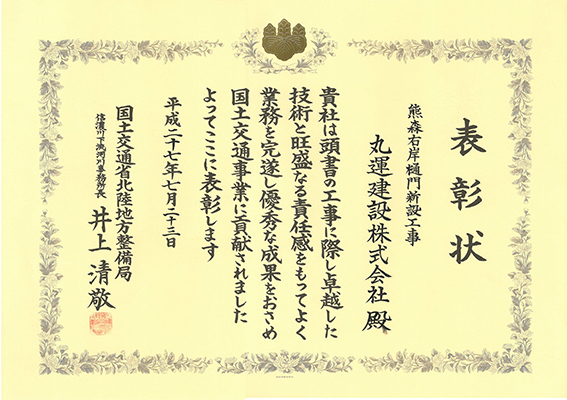 表彰状
熊森右岸樋門新設工事
丸運建設株式会社 殿
貴社は頭書の工事に際し卓越した
技術と旺盛なる責任感をもってよく
業務を完遂し優秀な成果をおさめ
国土交通事業に貢献されました
よってここに表彰します
平成二十七年七月二十三日
国土交通省北陸地方整備局
信濃川下流河川事務所長 井上 清敬